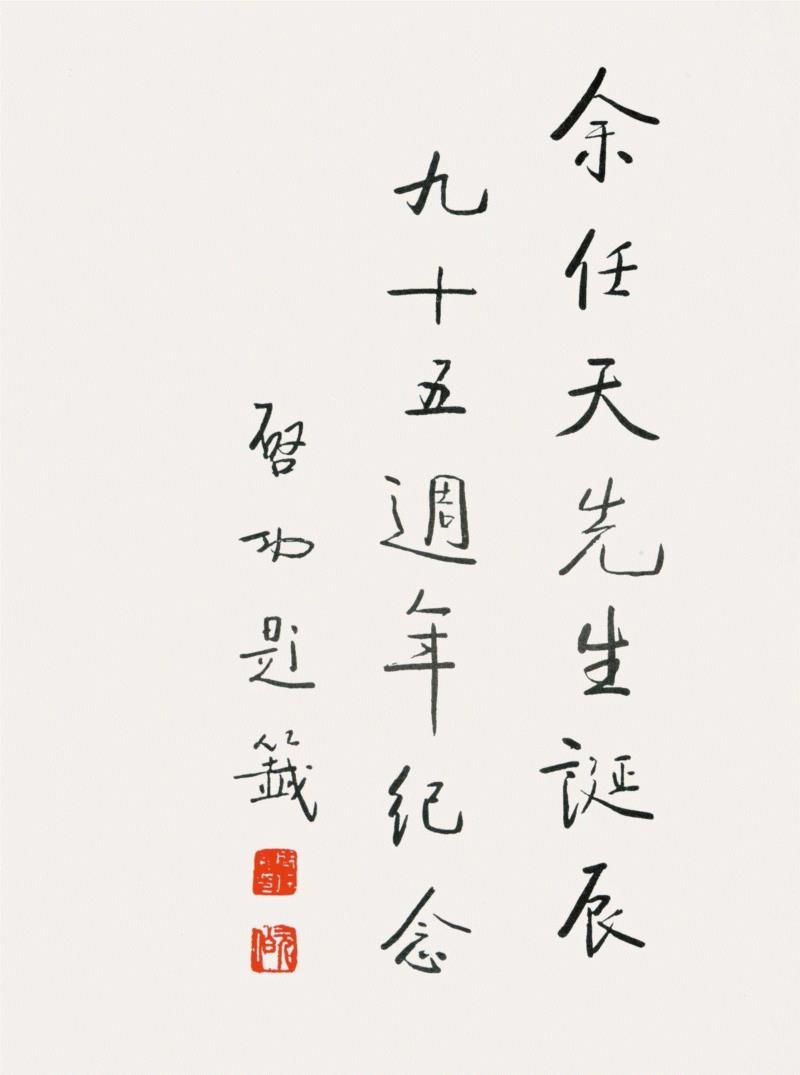 余任天先生誕辰
九十五週年紀念
啓功題籤